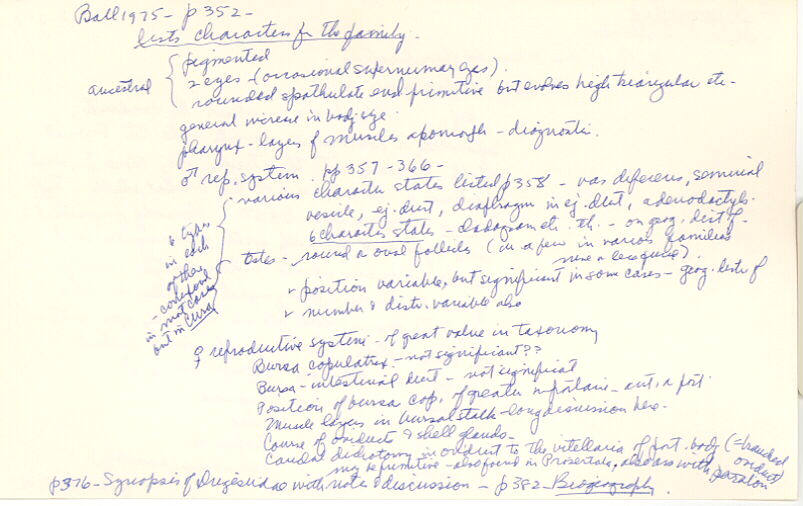 Ball 1975 - p 352 -
lists characters for the family.
ancestral { pigmented
2 eyes - (occasional supernumary eyes).
rounded spathulate end primitive but evolves high triangular etc -
general increase in body size
pharynx - layers of muscles apomorph - diagnostic.
♂ rep. system. pp 357-366 -
various character states listed p 358 - vas deferens, seminal
vesicle, ej. duct, diaphragm in ej. duct, adenodactyls.
6 character states - on geog. dist of -
6 types
in each
of these
in most cases
but in Cura
testes - round or oval follicles (in a few in various families
position variable, but significant in some cases - geog. distr of
number & distr. variable also
♀ reproductive system - of great value in taxonomy
Bursa copulatrix - not significant??
Bursa - intestinal duct - not significant
Position of bursa cop. of greater importance - ant. or post.
Muscle layers in bursal stalk - long discussion here.
Course of oviducts & shell glands -
Caudal dichotomy in oviduct to the vitellaria of post. body (= branched oviduct)
may be primitive - also found in Proseriata, also ass with
p 376 - Synopsis of Dugesiidae with notes & discussion - p 382 - Biogeography.